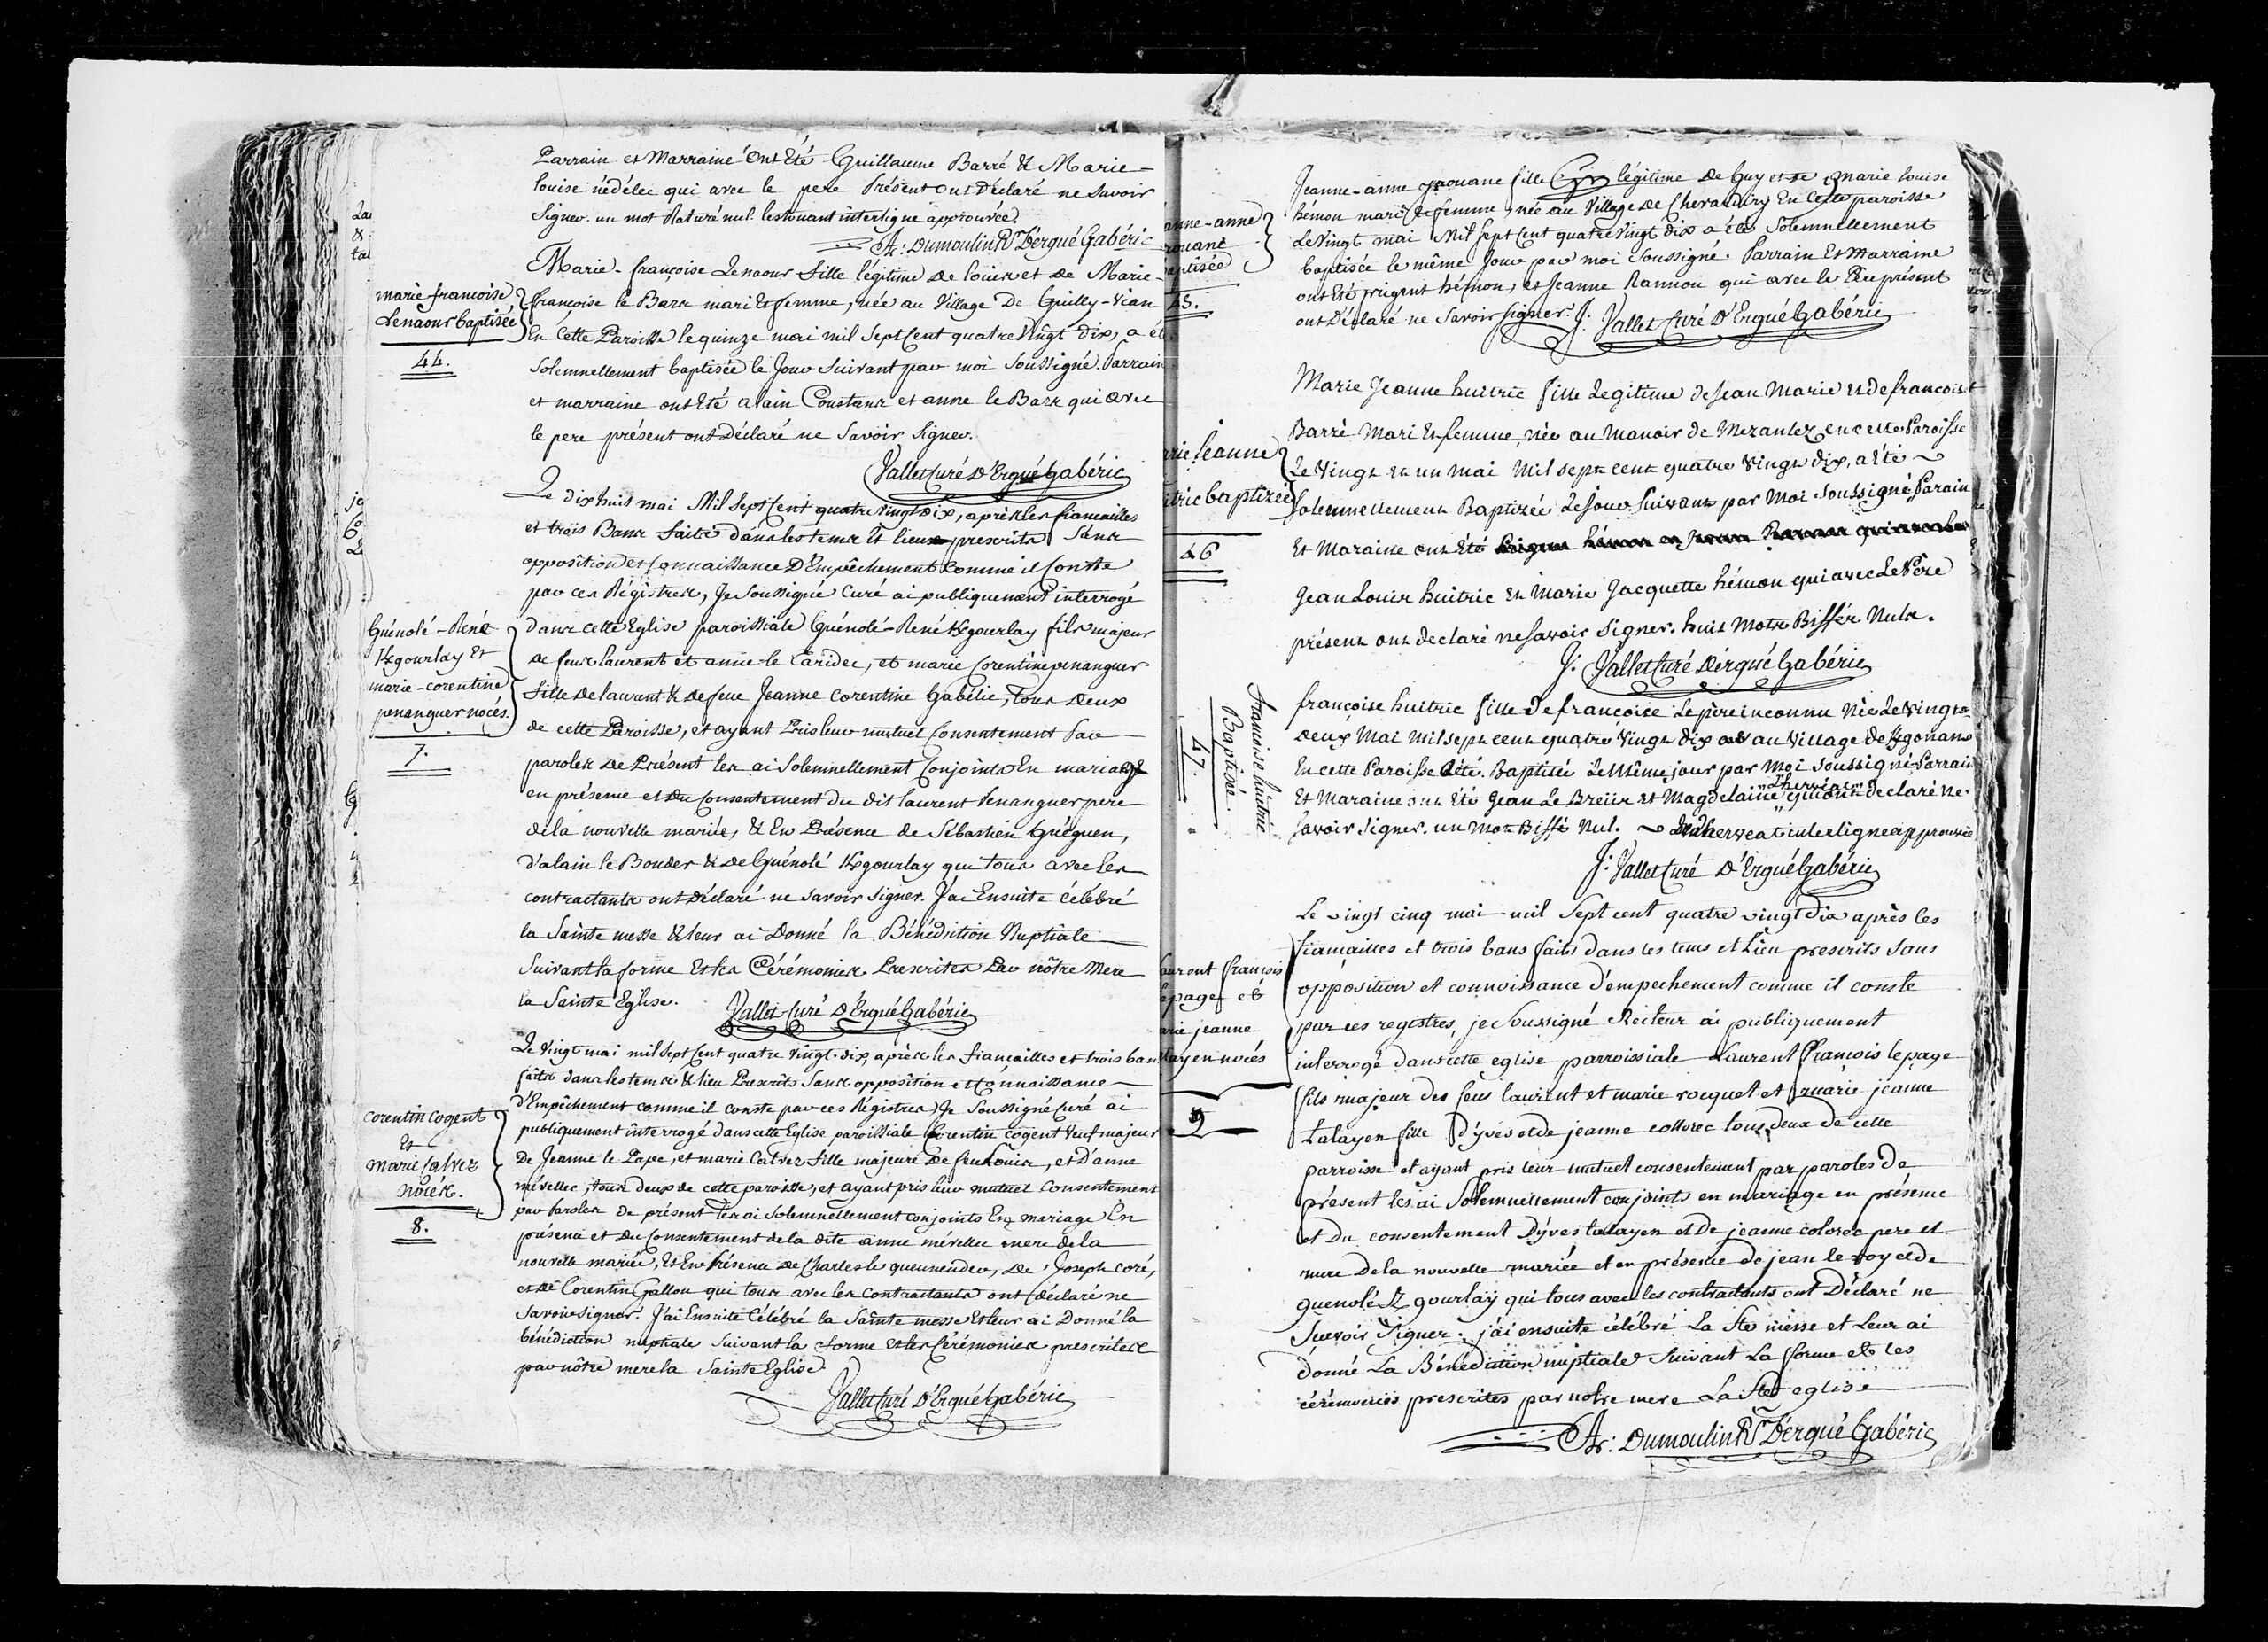 Parrain et Marraine ont Eté Guillaume Barré & Marie-
louise nédélec qui avec le pere Présent ont Déclaré ne Savoir
Signer. un mot Raturé nul. lestouant interligne approuvée.
Al: Dumoulin Rr D'ergué Gabéric
marie-françoise
Lenaour baptisée
44.
Marie-françoise Lenaour fille légitime de louis et de Marie-
françoise le Barz mari Et femme, née au Village De Guilly-vian
En Cette Paroisse le quinze mai mil Sept Cent quatre Vingt dix, a été
Solemnellement baptisée le Jour Suivant par moi Soussigné. Parrain
et marraine ont Eté alain Constant et anne le Barz qui avec
le pere présent ont Déclaré ne Savoir Signer.
Vallet Curé D'Ergué Gabéric
Guénolé-René
Kgourlay Et
marie-corentine
penanguer nocés.
7.
Le dix huit mai Mil Sept Cent quatre Vingt Dix, après les fiancailles
et trois Bans faits dans les tems Et lieux prescrits Sans
opposition et Connaissance D'Empêchement Comme il Conste
par ces Régistres, Je Soussigné Curé ai publiquement interrogé
dans cette Eglise paroissiale Guénolé-René Kgourlay fils majeur
de feux laurent et anne le Caridec, et marie Corentine penanguer
fille de laurent & de feue Jeanne Corentine Gabélic, tous Deux
de cette Paroisse, et ayant Pris leur mutuel Consentement Par
paroles de Présent les ai Solemnellement Conjoints En mariage
en présence et du Consentement du dit laurent Penanguer pere
de la nouvelle mariée, & En Présence de Sébastien Guéguen,
d'alain le Bouder & de Guénolé Kgourlay qui tous avec les
contractants ont déclaré ne Savoir Signer. J'ai Ensuite célébré
la Sainte messe & leur ai Donné la Bénédiction Nuptiale
Suivant la forme Et les Cérémonies Prescrites Par nôtre Mere
la Sainte Eglise.
Vallet Curé D'Ergué Gabéric
Corentin Cogent
Et
Marie Calvez
nocés.
8.
Le Vingt mai mil Sept Cent quatre Vingt-dix, après les fiancailles et trois bans
faits dans les tems & lieu Prescrits Sans opposition et Connaissance
d'Empêchement comme il conste par ces Régistres, Je Soussigné Curé ai
publiquement interrogé dans cette Eglise paroissiale Corentin Cogent Veuf majeur
De Jeanne le Pape, et marie Calvez fille majeure de feu Louis, et D'anne
mévellec, tous deux de cette paroisse, et ayant pris leur mutuel Consentement
par Paroles de présent les ai Solemnellement conjoints En mariage En
présence et du Consentement de la dite anne mévellec mere de la
nouvelle mariée, Et En Présence de Charles le queneudec, de Joseph Coré,
et de Corentin Gallou qui tous avec les Contractants ont déclaré ne
Savoir Signer. J'ai Ensuite Célébré la Sainte messe Et leur ai Donné la
bénédiction nuptiale Suivant la forme Et les Cérémonies prescrites
par nôtre mere la Sainte Eglise
Vallet Curé D'Ergué Gabéric
anne-anne
baptisée
45.
Jeanne-anne fille légitime de Guy et de marie louise
hémon mari Et femme, née au Village de Cheraury En Cette paroisse
Le Vingt mai Mil Sept Cent quatre Vingt Dix a été Solemnellement
baptisée le même Jour par moi Soussigné. Parrain Et Marraine
ont Eté prigent hémon, et Jeanne Rannou qui avec le Pere présent
ont Déclaré ne Savoir Signer. J. Vallet Curé D'Ergué Gabéric
rie Jeanne
itric baptizée
46
Marie Jeanne huitric fille Legitime de Jean Marie et de françoise
Barré Mari Et femme, née au Manoir de Mezanlez en cette Paroisse
Le Vingt et un Mai Mil sept cent quatre Vingt dix, a été
Solemnellement Baptizée Le Jour Suivant par Moi Soussigné, Parain
Et Maraine ont Eté
Jean Louis huitric Et Marie Jacquette hémon qui avec Le Père
présent ont declaré ne Savoir Signer. huit Mots Biffés Nuls.
J. Vallet Curé D'érgué Gabéric
francoise huitric
Baptisée.
47.
françoise huitric fille de françoise Le père inconnu née Le Vingt
deux Mai Mil sept cent quatre Vingt Dix au Village de Kgonan
En cette Paroisse a été Baptisée Le Même jour par Moi Soussigné Parrain
Et Maraine ont Eté Jean Le Breiis et Magdelaine "Lherveat" qui ont declaré ne
Savoir Signer. un Mot Biffé Nul. Lherveat interligne approuvée
J. Vallet Curé D'Ergué Gabéric
aurent françois
epage et
arie jeanne
layen nocés
9
Le vingt cinq mai mil Sept cent quatre vingt dix après les
fiancailles et trois bans faits dans les tems et Lieu prescrits Sans
opposition et connoissance d'empechement comme il conste
par ces registres, je Soussigné Recteur ai publiquement
interrogé dans cette eglise parroissiale Laurent François lepage
fils majeur des feus laurent et marie rocquet et marie jeanne
talayen fille D'yves et de jeanne collorec tous deux de cette
parroisse et ayant pris leur mutuel consentement par paroles de
présent les ai Solemnellement conjoints en mariage en présence
et du consentement D'yves tallayen et De jeanne colorec pere et
mere de la nouvelle mariée et en présence de jean le roy et de
guenolé K gourlaÿ qui tous avec les contractants ont Déclaré ne
Scavoir Signer. j'ai ensuite célébré La Ste messe et Leur ai
donné La Bénédiction nuptiale Suivant La forme et les
cérémonies prescrites par notre mere La Ste eglise
Al: Dumoulin Rr D'érgué Gabéric